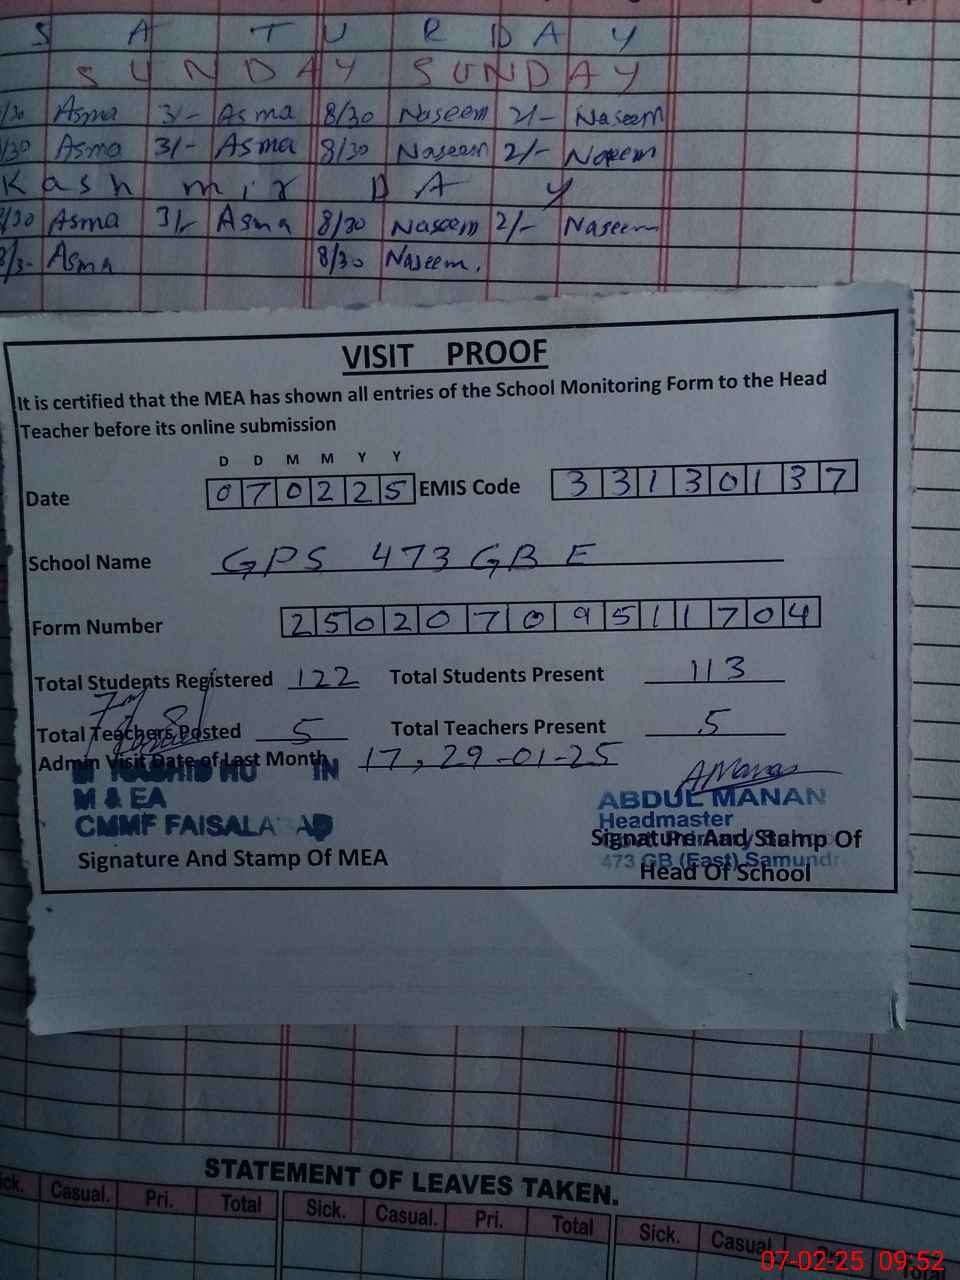 S A T U R D A Y
S U N D A Y S U N D A Y
Asma 3/- Asma 8/30 Naseem 2/- Naseem
Asma 3/- Asma 8/30 Naseem 2/- Naseem
K a s h m i r D A Y
8/30 Asma 3/- Asma 8/30 Naseem 2/- Naseem
Asma 8/30 Naseem.
VISIT PROOF
It is certified that the MEA has shown all entries of the School Monitoring Form to the Head
Teacher before its online submission
D D M M Y Y
Date 0 7 0 2 2 5 EMIS Code 3 3 1 3 0 1 3 7
School Name GPS 473 GB E
Form Number 2 5 0 2 0 7 0 9 5 1 1 7 0 4
Total Students Registered 122 Total Students Present 113
Total Teachers Posted 5 Total Teachers Present 5
Admin Visit Date of Last Month 17, 29-01-25
M & EA
CMMF FAISALABAD
Signature And Stamp Of MEA
AManan
ABDUL MANAN
Headmaster
Signature And Stamp Of
473 GB (East) Samundr
Head Of School
STATEMENT OF LEAVES TAKEN.
Casual. Pri. Total Sick. Casual. Pri. Total Sick. Casual
07-02-25 09:52